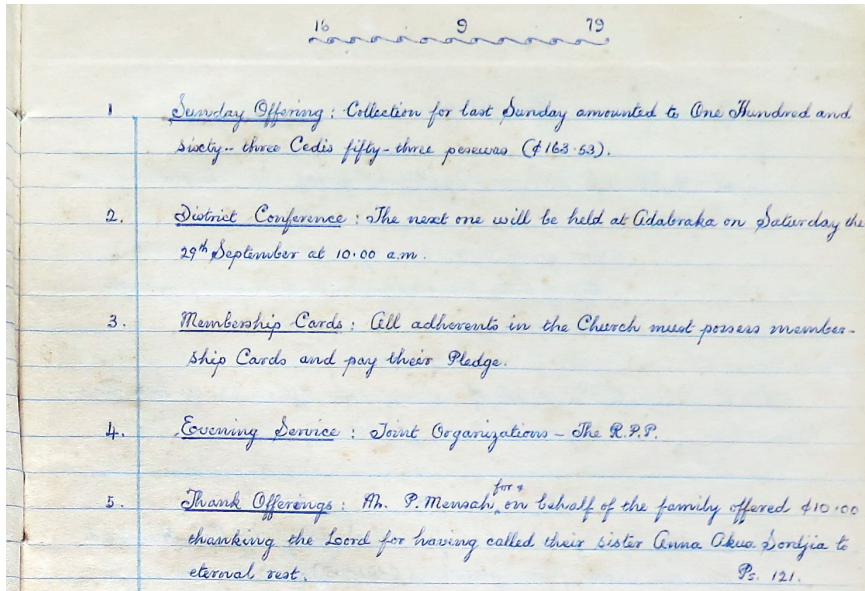 16 9 79
1 Sunday Offering : Collection for last Sunday amounted to One Hundred and
sixty-three Cedis fifty-three pesewas (₵163.53).
2. District Conference : The next one will be held at Adabraka on Saturday the
29th September at 10.00 a.m.
3. Membership Cards : All adherents in the Church must possess member-
ship Cards and pay their Pledge.
4. Evening Service : Joint Organizations - The R.P.P.
for &
5. Thank Offerings : P. Mensah, on behalf of the family offered ₵10.00
thanking the Lord for having called their sister Anna Akua Sordjia to
eternal rest. Ps. 121.